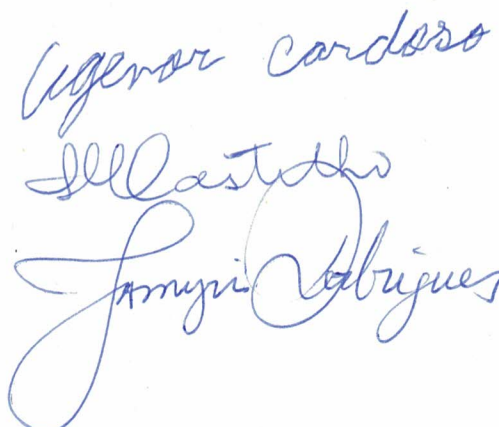 Agenor Cardoso
Castilho
Tamyris Rodrigues